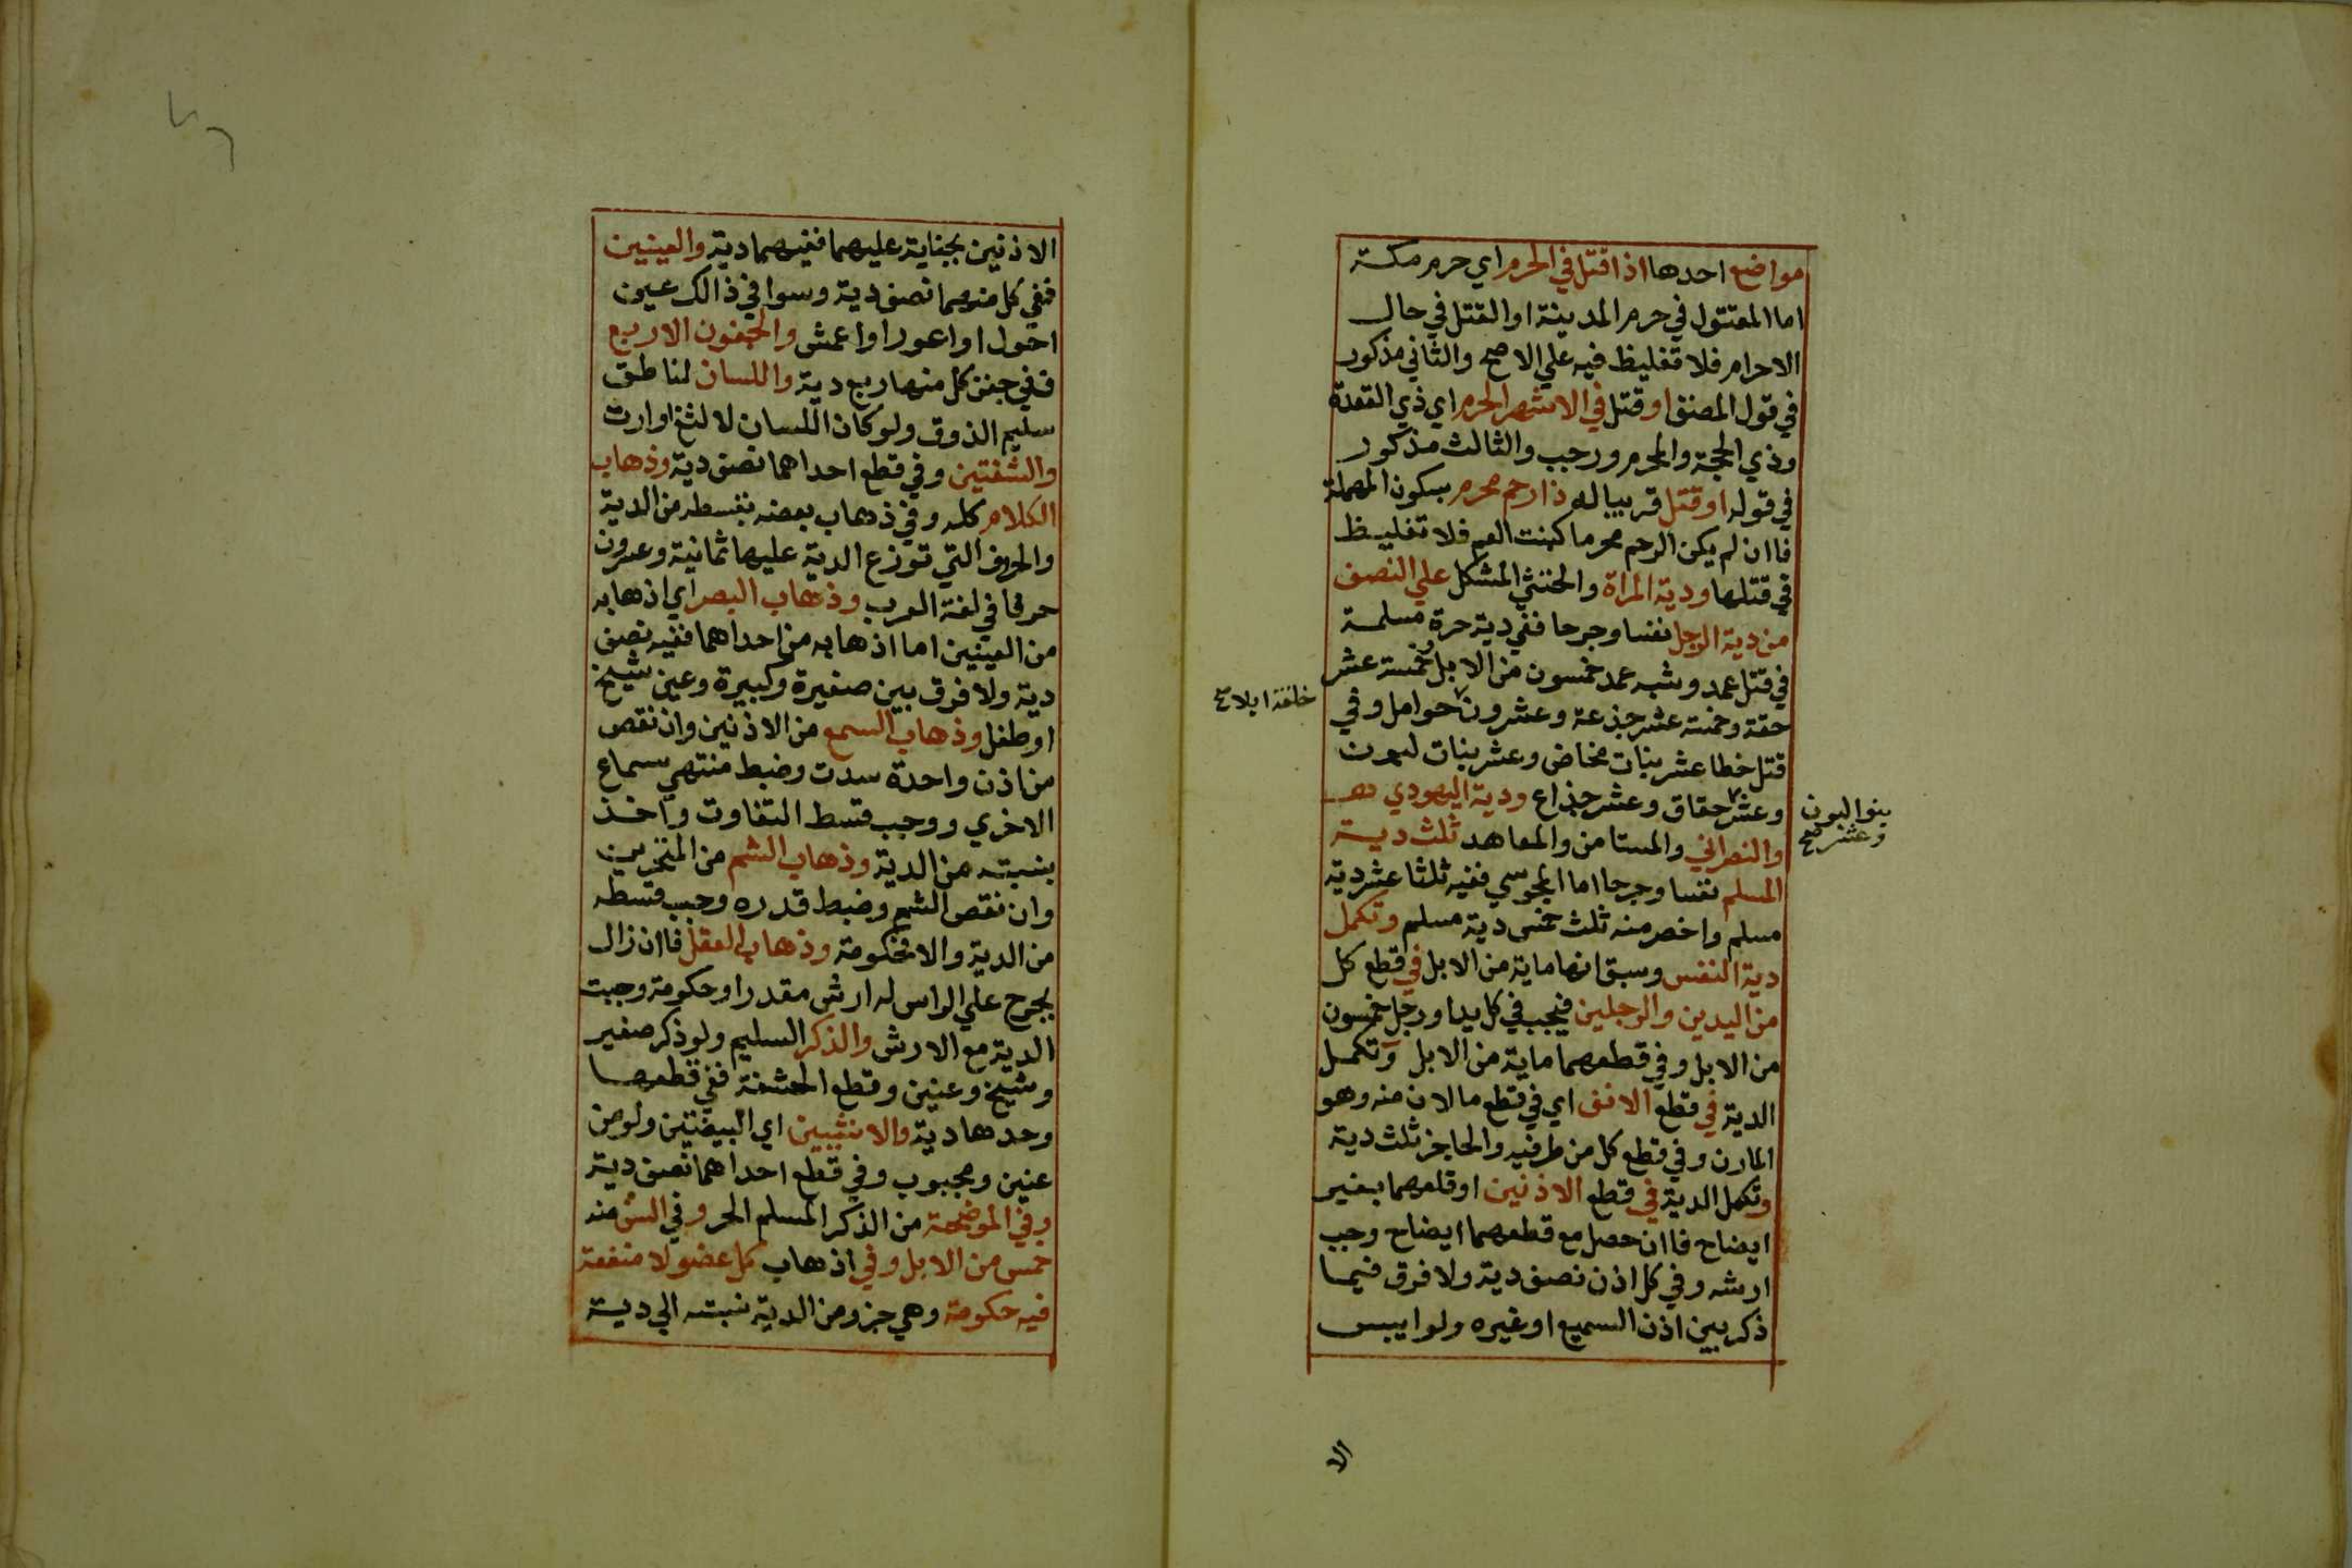 مواضع احدها اذا قتل في الحرم اي حرم مكة
اما المقتول في حرم المدينة او القتل في حال
الاحرام فلا تغليظ فيه علي الاصح والثاني مذكور
في قول المصنف او قتل في الاشهر الحرم اي ذي القعدة
وذي الحجة والمحرم ورجب والثالث مذكور
في قوله او قتل قريبا له ذا رحم محرم بسكون المهملة
فاان لم يكن الرحم محرما كبنت العم فلا تغليظ
في قتلها ودية المراة والخنثي المشكل علي النصف
من دية الرجل نفسا وجرحا ففي دية حرة مسلمة
في قتل عمد وشبه عمد خمسون من الابل خمسة عشر
حقة وخمسة عشر جذعة وعشرون حوامل وفي
خلفة ابلا صح
قتل خطا عشر بنات مخاض وعشر بنات لبون
وعشر حقاق وعشر جذاع ودية اليهودي
بنوا لبون
وعشر صح
والنصراني والمستامن والمعاهد ثلث دية
المسلم نفسا وجرحا اما المجوسي ففيه ثلثا عشر دية
مسلم واخصر منه ثلث خمس دية مسلم وتكمل
دية النفس وسبق انها ماية من الابل في قطع كل
من اليدين والرجلين فيجب في كل يد او رجل خمسون
من الابل وفي قطعهما ماية من الابل وتكمل
الدية في قطع الانف اي في قطع ما لان منه وهو
المارن وفي قطع كل من طرفيه والحاجز ثلث دية
وتكمل الدية في قطع الاذنين او قلعهما بغير
ايضاح فاان حصل مع قطعهما ايضاح وجب
ارشه وفي كل اذن نصف دية ولا فرق فيما
ذكر بين اذن السميع او غيره ولو ايبس
الا
الاذنين بجناية عليهما ففيهما دية والعينين
ففي كل منهما نصف دية وسوا في ذالك عين
احول او اعور او اعمش والجفون الاربع
ففي جفن كل منها ربع دية واللسان لناطق
سليم الذوق ولو كان اللسان لالثغ او ارت
والشفتين وفي قطع احداهما نصف دية وذهاب
الكلام كله وفي ذهاب بعضه بقسطه من الدية
والحروف التي توزع الدية عليها ثمانية وعشرون
حرفا في لغة العرب وذهاب البصر اي اذهابه
من العينين اما اذهابه من احداهما ففيه نصف
دية ولا فرق بين صغيرة وكبيرة وعين شيخ
او طفل وذهاب السمع من الاذنين وان نقص
من اذن واحدة سدت وضبط منتهي سماع
الاخري ووجب قسط التفاوت واخذ
بنسبته من الدية وذهاب الشم من المنخرين
وان نقص الشم وضبط قدره وجب قسطه
من الدية والا فحكومة وذهاب العقل فاان زال
بجرح علي الراس له ارش مقدر او حكومة وجبت
الدية مع الارش والذكر السليم ولو ذكر صغير
وشيخ وعنين وقطع الحشفة ففي قطعها
وحدها دية والانثيين اي البيضتين ولو من
عنين ومجبوب وفي قطع احداهما نصف دية
وفي الموضحة من الذكر المسلم الحر وفي السن منه
خمس من الابل وفي اذهاب كل عضو لا منفعة
فيه حكومة وهي جزو من الدية نسبته الي دية